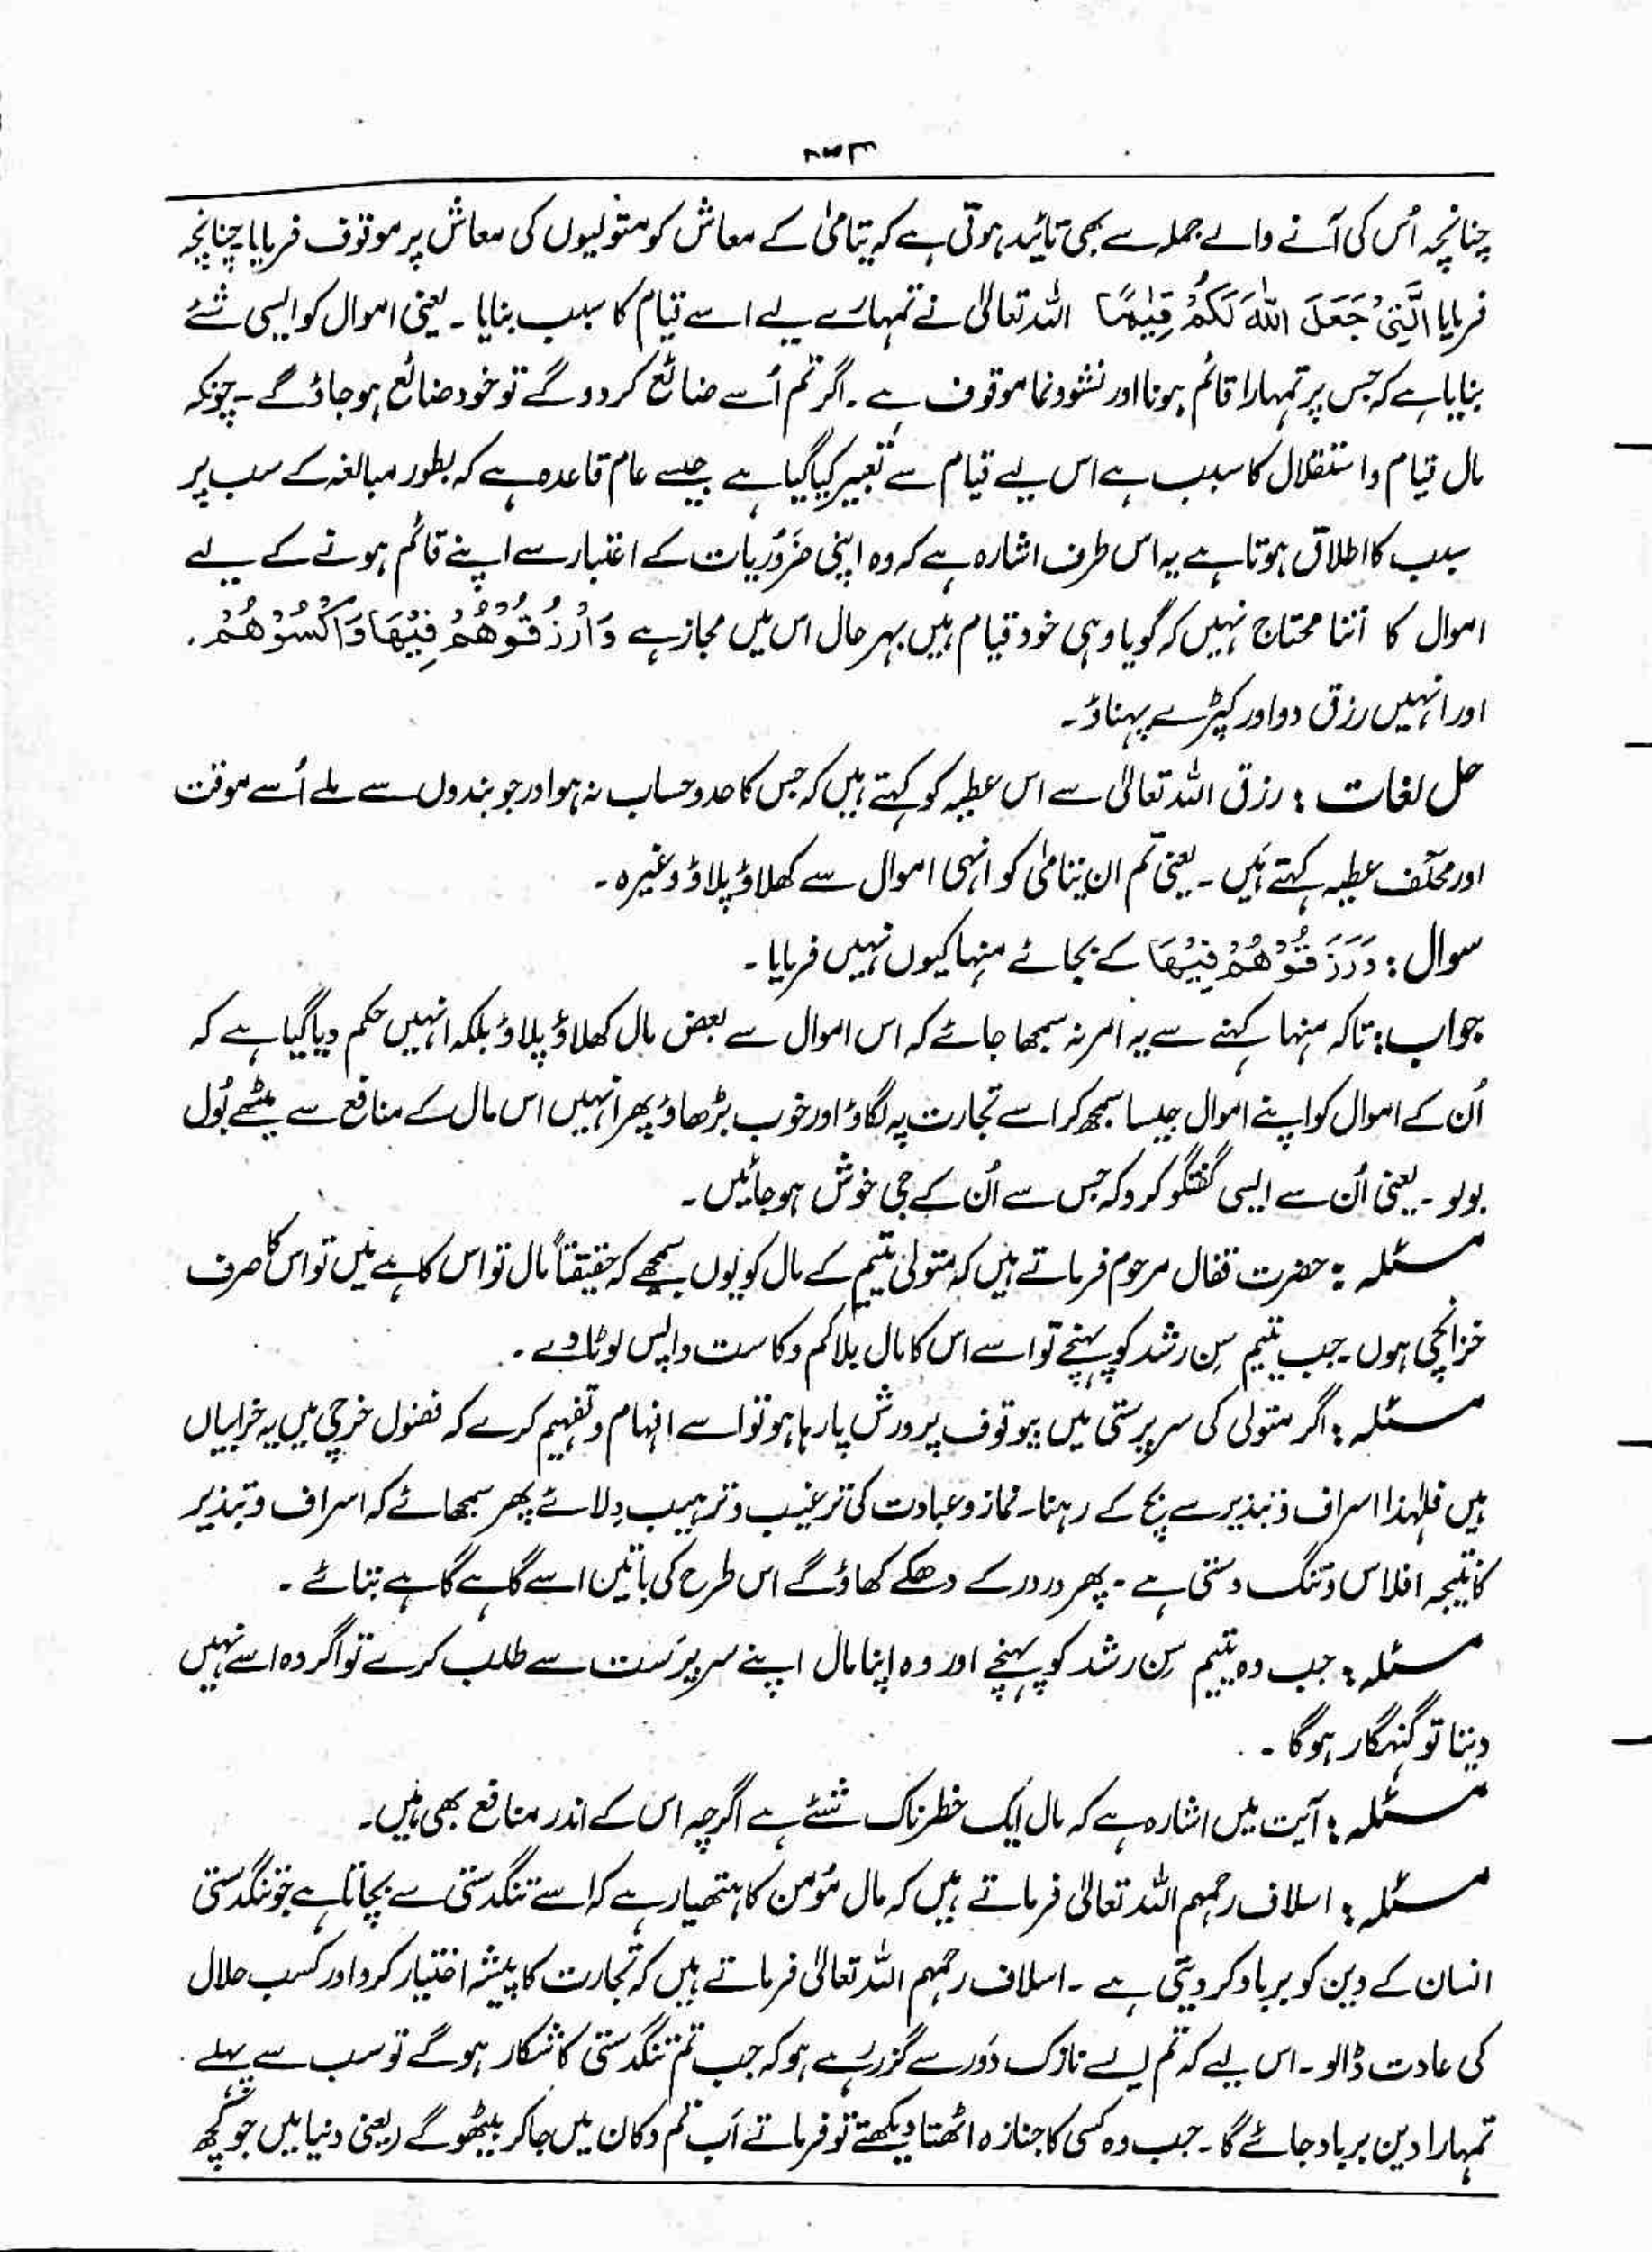 چنانچہ اُس کی آنے والے جملہ سے بھی تائید ہوتی ہے کہ یتامیٰ کے معاش کو متولیوں کی معاش پر موقوف فرمایا چنانچہ
فرمایا الَّتِیْ جَعَلَ اللّٰهُ لَکُمْ قِیٰمًا اللہ تعالیٰ نے تمہارے لیے اسے قیام کا سبب بنایا ۔ یعنی اموال کو ایسی شئے
بنایا ہے کہ جس پر تمہارا قائم ہونا اور نشوونما موقوف ہے ۔ اگر تم اُسے ضائع کر دو گے تو خود ضائع ہو جاؤ گے ۔ چونکہ
مال قیام و استقلال کا سبب ہے اس لیے قیام سے تعبیر کیا گیا ہے جیسے عام قاعدہ ہے کہ بطور مبالغہ کے سب پر
سبب کا اطلاق ہوتا ہے یہ اس طرف اشارہ ہے کہ وہ اپنی ضَرُوریات کے اعتبار سے اپنے قائم ہونے کے لیے
اموال کا اتنا محتاج نہیں کہ گویا وہی خود قیام ہیں بہر حال اس میں مجاز ہے وَارْزُقُوْهُمْ فِیْهَا وَاکْسُوْهُمْ ۔
اور انہیں رزق دو اور کپڑے پہناؤ ۔
حل لغات : رزق اللہ تعالیٰ سے اس عطیہ کو کہتے ہیں کہ جس کا حد و حساب نہ ہو اور جو بندوں سے ملے اُسے موقت
اور محلّف عطیہ کہتے ہیں ۔ یعنی تم ان یتامیٰ کو انہی اموال سے کھلاؤ پلاؤ وغیرہ ۔
سوال : وَرَزَقُوْهُمْ فِیْهَا کے بجائے منہا کیوں نہیں فرمایا ۔
جواب : تاکہ منہا کہنے سے یہ امر نہ سمجھا جائے کہ اس اموال سے بعض مال کھلاؤ پلاؤ بلکہ انہیں حکم دیا گیا ہے کہ
اُن کے اموال کو اپنے اموال جیسا سمجھ کر اسے تجارت پہ لگاؤ اور خوب بڑھاؤ پھر انہیں اس مال کے منافع سے میٹھے بُول
بولو ۔ یعنی اُن سے ایسی گفتگو کرو کہ جس سے اُن کے جی خوش ہو جائیں ۔
مسئلہ : حضرت قفال مرحوم فرماتے ہیں کہ متولی یتیم کے مال کو یوں سمجھے کہ حقیقتاً مال تو اس کا ہے میں تو اس کا صرف
خزانچی ہوں ۔ جب یتیم سِن رشد کو پہنچے تو اسے اس کا مال بلا کم و کاست واپس لوٹا دے ۔
مسئلہ : اگر متولی کی سرپرستی میں بیوقوف پرورش پا رہا ہو تو اسے افہام و تفہیم کرے کہ فضول خرچی میں یہ خرابیاں
ہیں فلہٰذا اسراف و تبذیر سے بچ کے رہنا ۔ نماز و عبادت کی ترغیب و ترہیب دلائے پھر سمجھائے کہ اسراف و تبذیر
کا نتیجہ افلاس و تنگ دستی ہے ۔ پھر در در کے دھکے کھاؤ گے اس طرح کی باتیں اسے گاہے گاہے بتائے ۔
مسئلہ : جب وہ یتیم سِن رشد کو پہنچے اور وہ اپنا مال اپنے سرپرست سے طلب کرے تو اگر وہ اسے نہیں
دیتا تو گنہگار ہو گا ۔
مسئلہ : آیت میں اشارہ ہے کہ مال ایک خطرناک شئے ہے اگرچہ اس کے اندر منافع بھی ہیں ۔
مسئلہ : اسلاف رحمہم اللہ تعالیٰ فرماتے ہیں کہ مال مومن کا ہتھیار ہے کہ اسے تنگدستی سے بچاتا ہے جو تنگدستی
انسان کے دین کو برباد کر دیتی ہے ۔ اسلاف رحمہم اللہ تعالیٰ فرماتے ہیں کہ تجارت کا پیشہ اختیار کرو اور کسب حلال
کی عادت ڈالو ۔ اس لیے کہ تم ایسے نازک دَور سے گزر رہے ہو کہ جب تم تنگدستی کا شکار ہو گے تو سب سے پہلے
تمہارا دین برباد جائے گا ۔ جب وہ کسی کا جنازہ اٹھتا دیکھتے تو فرماتے اَب تم دکان میں جا کر بیٹھو گے (یعنی دنیا میں جو کچھ